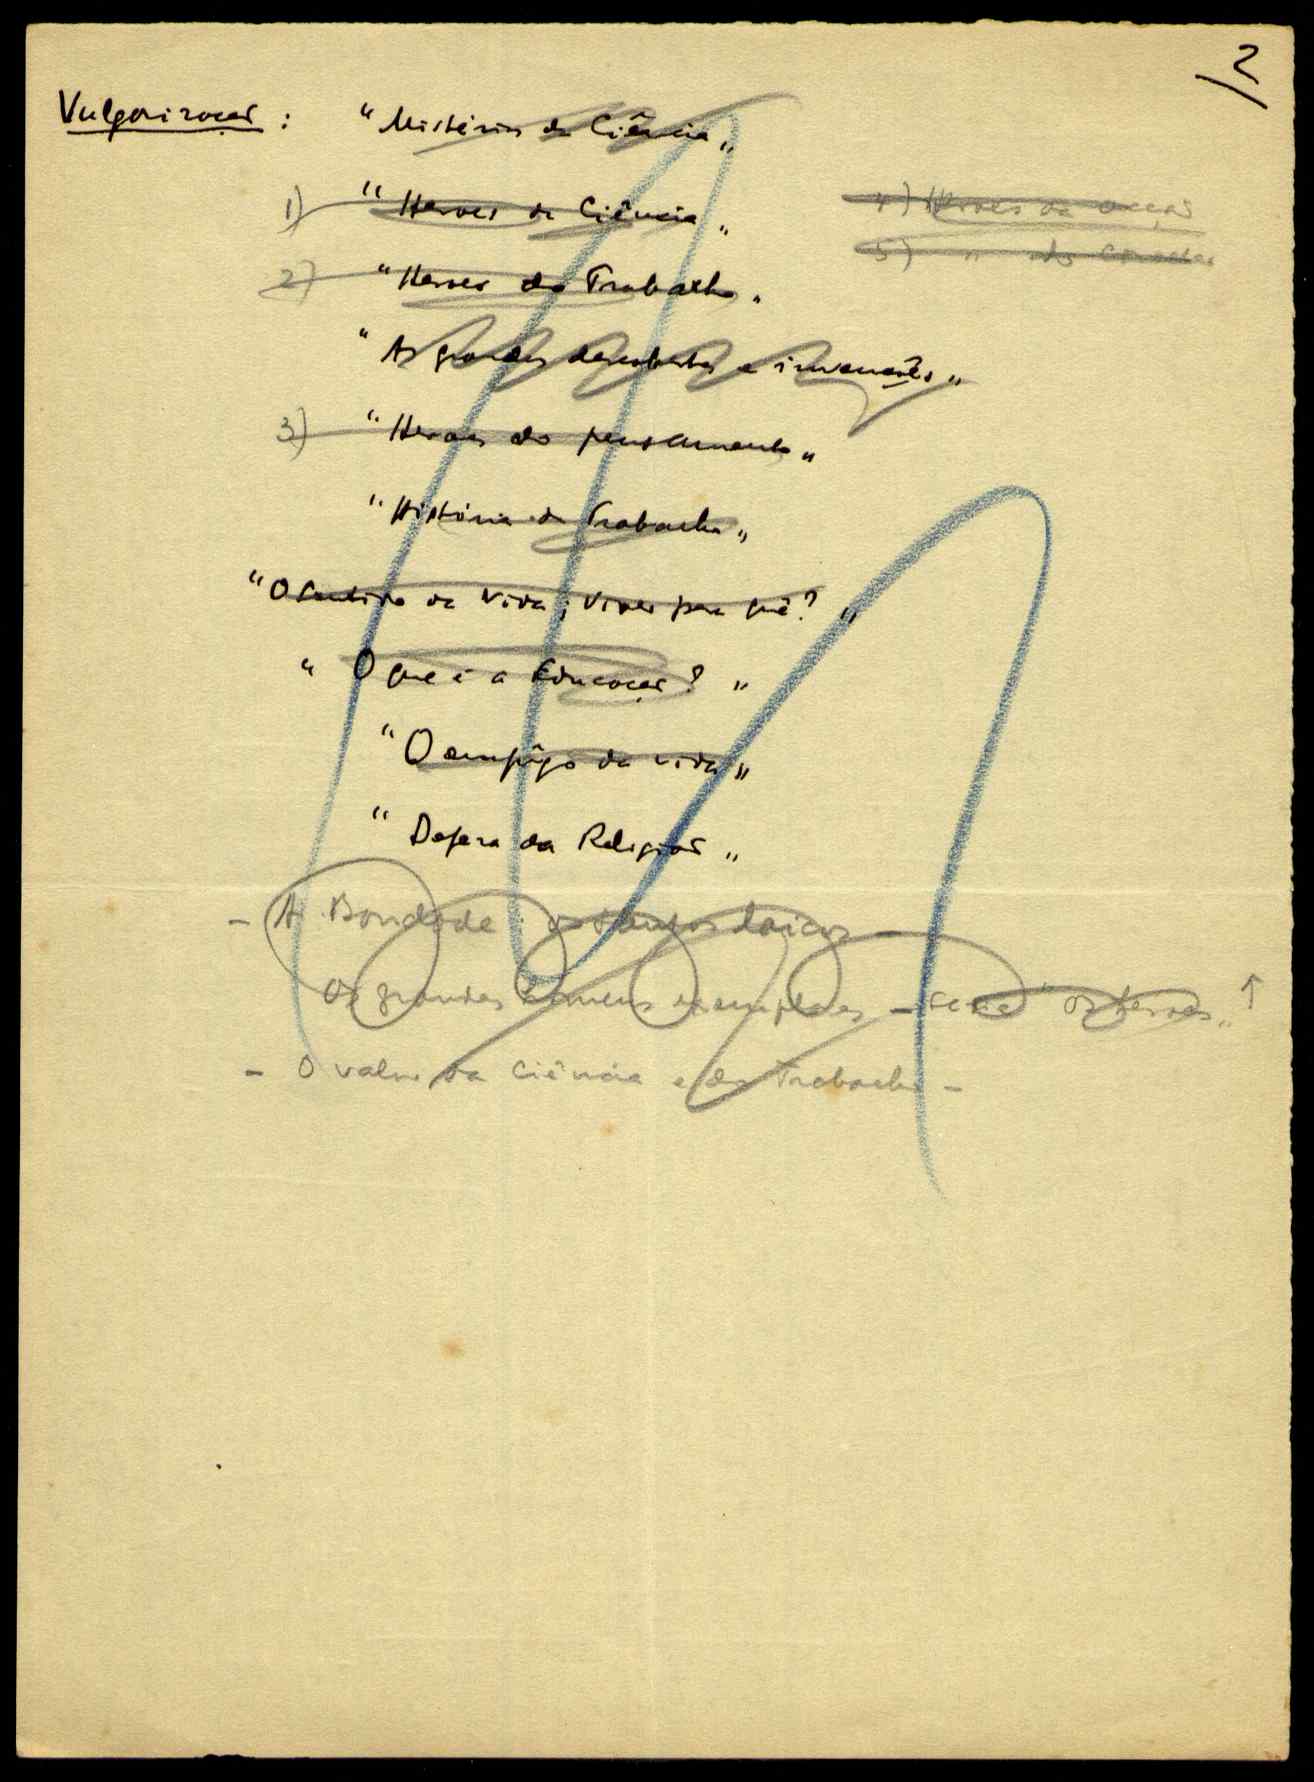 2
Vulgarização: "Mistérios da Ciência"
1) "Heroes da Ciência"
4) Heroes da acção
5) " do
2) "Heroes do Trabalho"
"As grandes descobertas e invenções"
3) "Heroes do pensamento"
"História do Trabalho"
"O Sentido da Vida; Viver para quê?"
"O que é a Educação?"
"O da vida"
"Defesa da Religião"
- A Bondade os Santos laicos -
Os grandes homens exemplares - série "os heroes" ↑
- O valor da Ciência e do Trabalho -